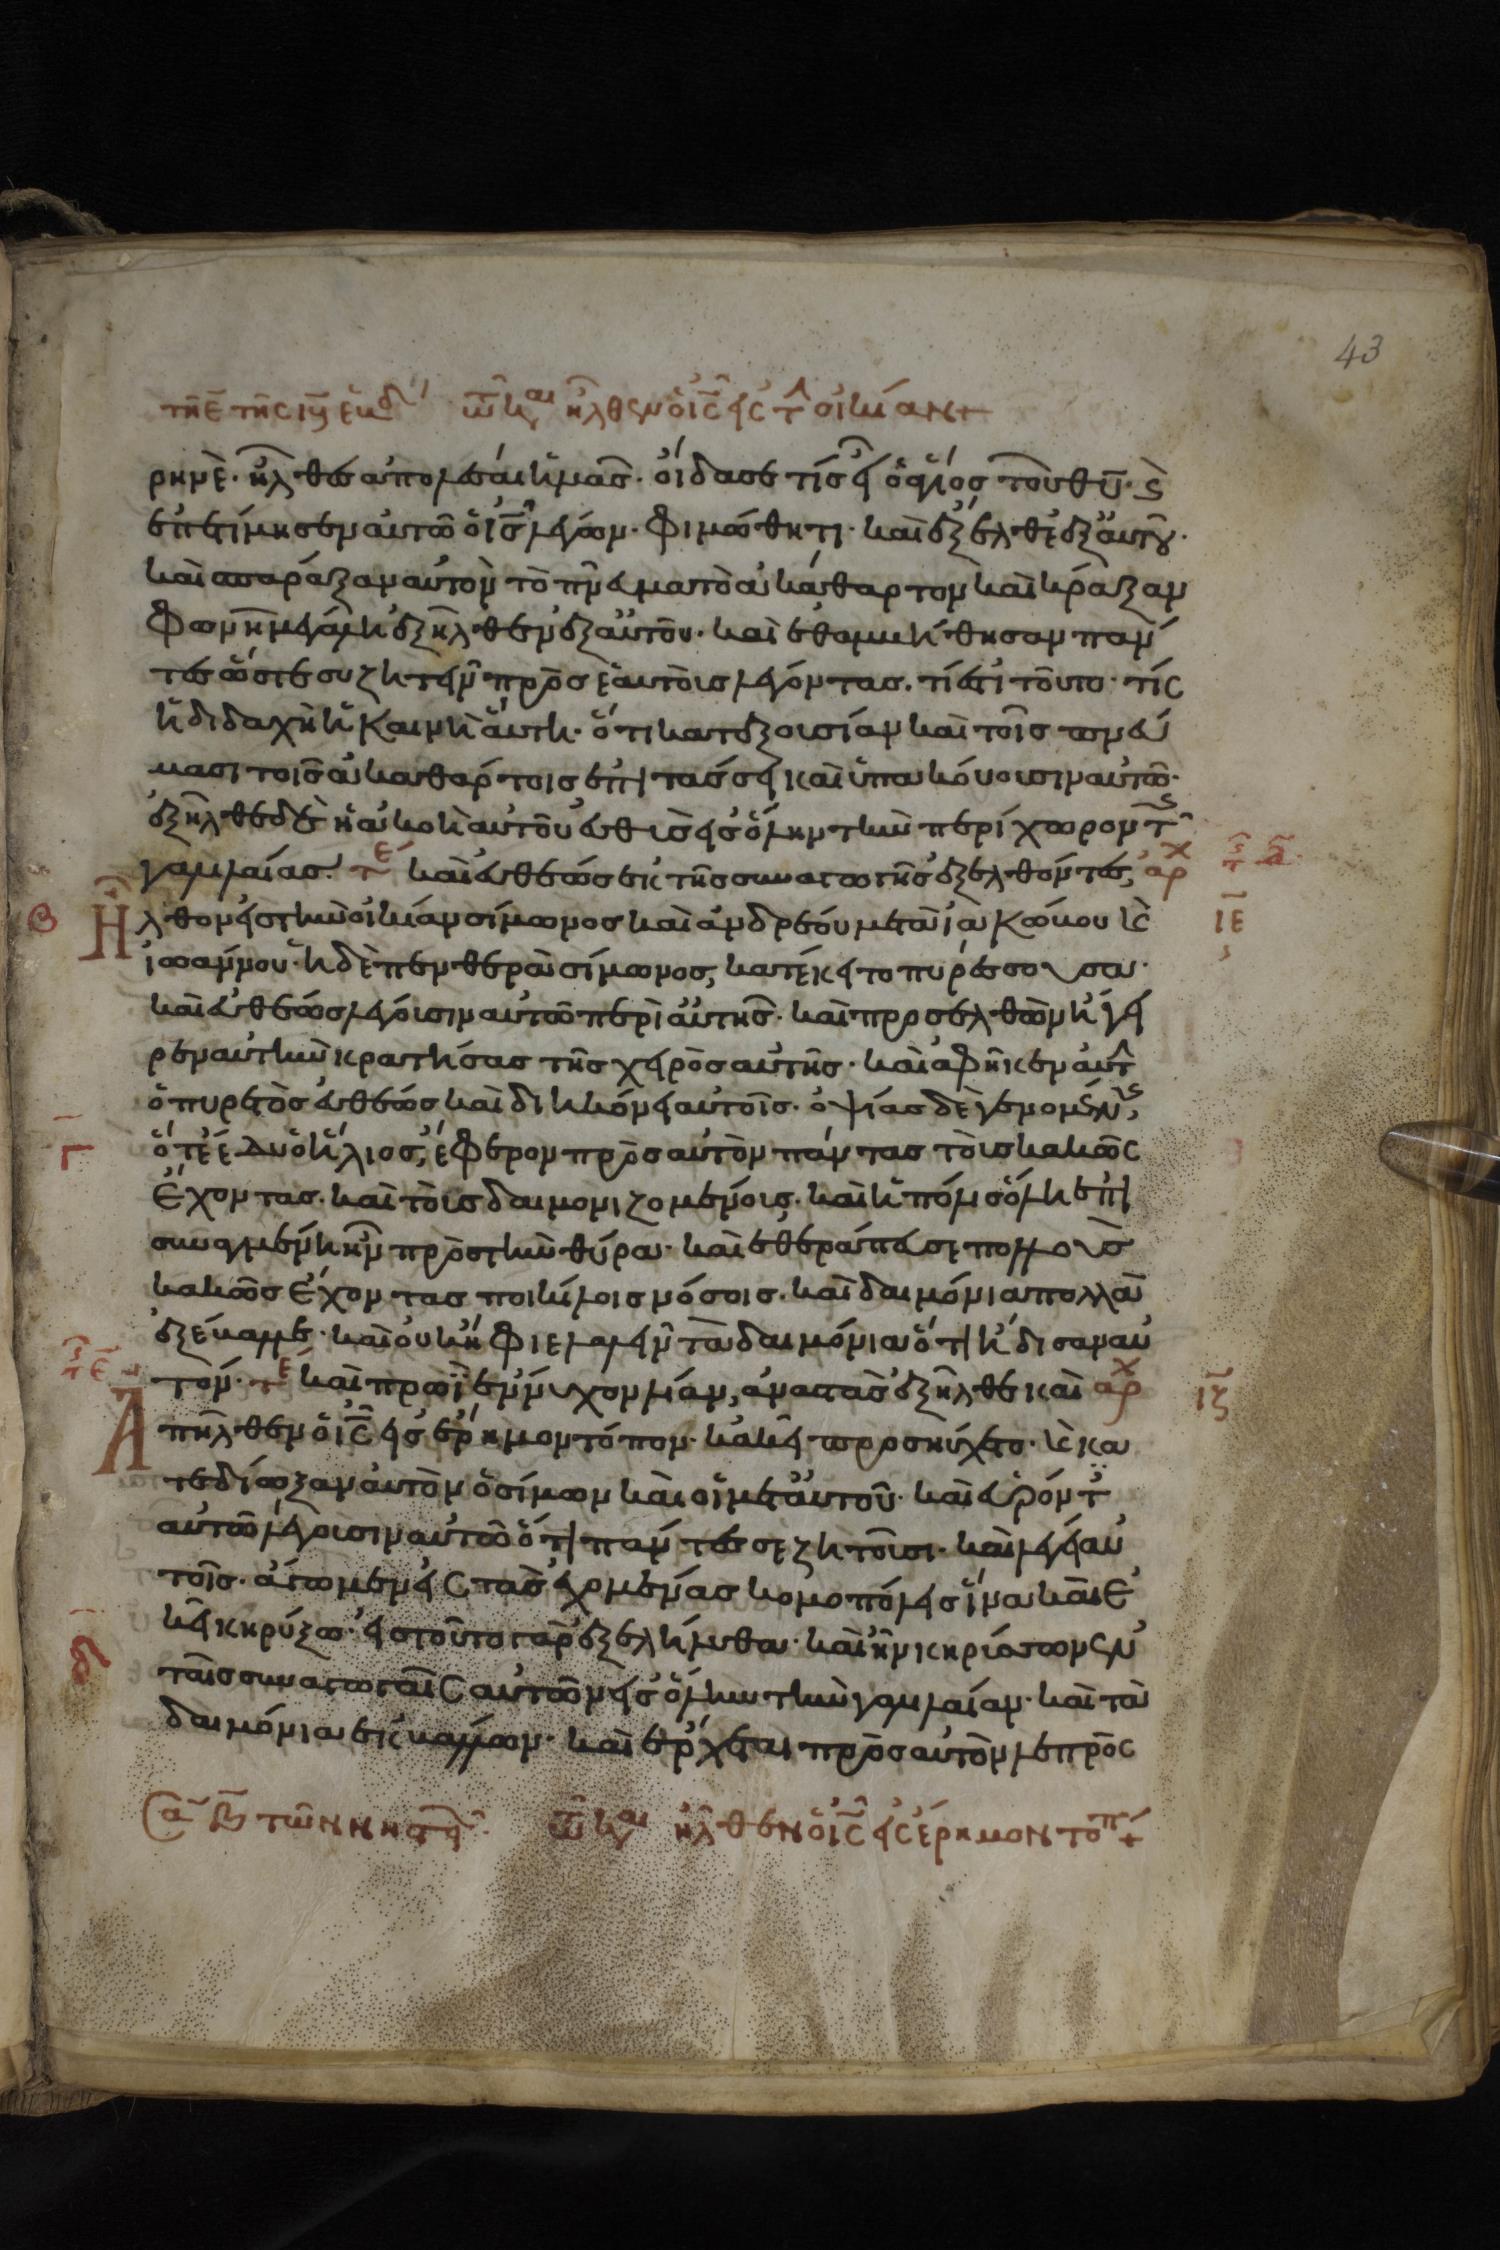 43
τῆ ε τῆς ιγ ἑβδ τῶ και ἦλθεν ὁ ις εἰς τ οἰκίαν +
ρηνέ· ἦλθες ἀπολέσαι ἡμᾶς· οἶδα σε τίς εἶ ὁ ἅγιος τοῦ θῦ· κ
ἐπετίμησεν αὐτῶ ὁ ις λέγων· φιμώθητι· καὶ ἔξελθε ἐξ αὐτοῦ·
καὶ σπαράξαν αὐτὸν τὸ πνεῦμα τὸ ἀκάθαρτον καὶ κράξαν
φωνῆ μεγάλη ἐξῆλθεν ἐξ αὐτοῦ· καὶ ἐθαμβήθησαν πάν
τες ὥστε συζητεῖν πρὸς ἑαυτοὺς λέγοντας· τί ἐστι τοῦτο· τίς
ἡ διδαχὴ ἡ καινὴ αὕτη· ὅτι κατ ἐξουσίαν καὶ τοῖς πνεύ
μασι τοῖς ἀκαθάρτοις ἐπιτάσσει καὶ ὑπακούουσιν αὐτῶ·
ἐξῆλθε δὲ ἡ ἀκοὴ αὐτοῦ εὐθὺς εἰς ὅλην τὴν περίχωρον τῆς
γαλιλαίας· τε καὶ εὐθέως ἐκ τῆς συναγωγῆς ἐξελθόντες, αρχ
Ηλθον εἰς τὴν οἰκίαν σίμωνος καὶ ἀνδρέου μετὰ ἰακώβου κ
ἰωάννου· ἡ δὲ πενθερὰ σίμωνος, κατέκειτο πυρέσσουσα·
καὶ εὐθέως λέγουσιν αὐτῶ περὶ αὐτῆς· καὶ προσελθὼν ἤγει
ρεν αὐτὴν κρατήσας τῆς χειρὸς αὐτῆς· καὶ ἀφῆκεν αὐτ
ὁ πυρετὸς εὐθέως καὶ διηκόνει αὐτοῖς· ὀψίας δὲ γενομένης,
ὅτε ἔδυ ὁ ἥλιος, ἔφερον πρὸς αὐτὸν πάντας τοὺς κακῶς
ἔχοντας· καὶ τοὺς δαιμονιζομένους· καὶ ἡ πόλις ὅλη ἐπι
συνηγμένη ἦν πρὸς τὴν θύραν· καὶ ἐθεράπευσε πολλοὺς
κακῶς ἔχοντας ποικίλοις νόσοις· καὶ δαιμόνια πολλὰ
ἐξέβαλε· καὶ οὐκ ἤφιε λαλεῖν τὰ δαιμόνια ὅτι ᾔδισαν αὐ
τόν· τε καὶ πρωῒ ἔννυχον λίαν, ἀναστὰς ἐξῆλθε καὶ αρχ
Απῆλθεν ὁ ις εἰς ἔρημον τόπον· κἀκεῖ προσηύχετο· κ κα
τεδίωξαν αὐτὸν ὁ σίμων καὶ οἱ μετ αὐτοῦ· καὶ εὑρόντ
αὐτῶ λέγουσιν αὐτῶ ὅτι πάντες σε ζητοῦσι· καὶ λέγει αὐ
τοῖς· ἄγωμεν εἰς τὰς ἐχομένας κομοπόλεις ἵνα καὶ ἐ
κεῖ κηρύξω· εἰς τοῦτο γὰρ ἐξελήλυθα· καὶ ἦν κηρύσσων ἐν
ταῖς συναγωγαῖς αὐτῶν εἰς ὅλην τὴν γαλιλαίαν· καὶ τὰ
δαιμόνια ἐκβάλλων· καὶ ἔρχεται πρὸς αὐτὸν λεπρός
Σα β τῶν νηστει τῶ και ἦλθεν ὁ ις εἰς ἔρημον τόπ +
α
ιε
ιζ
β
γ
δ